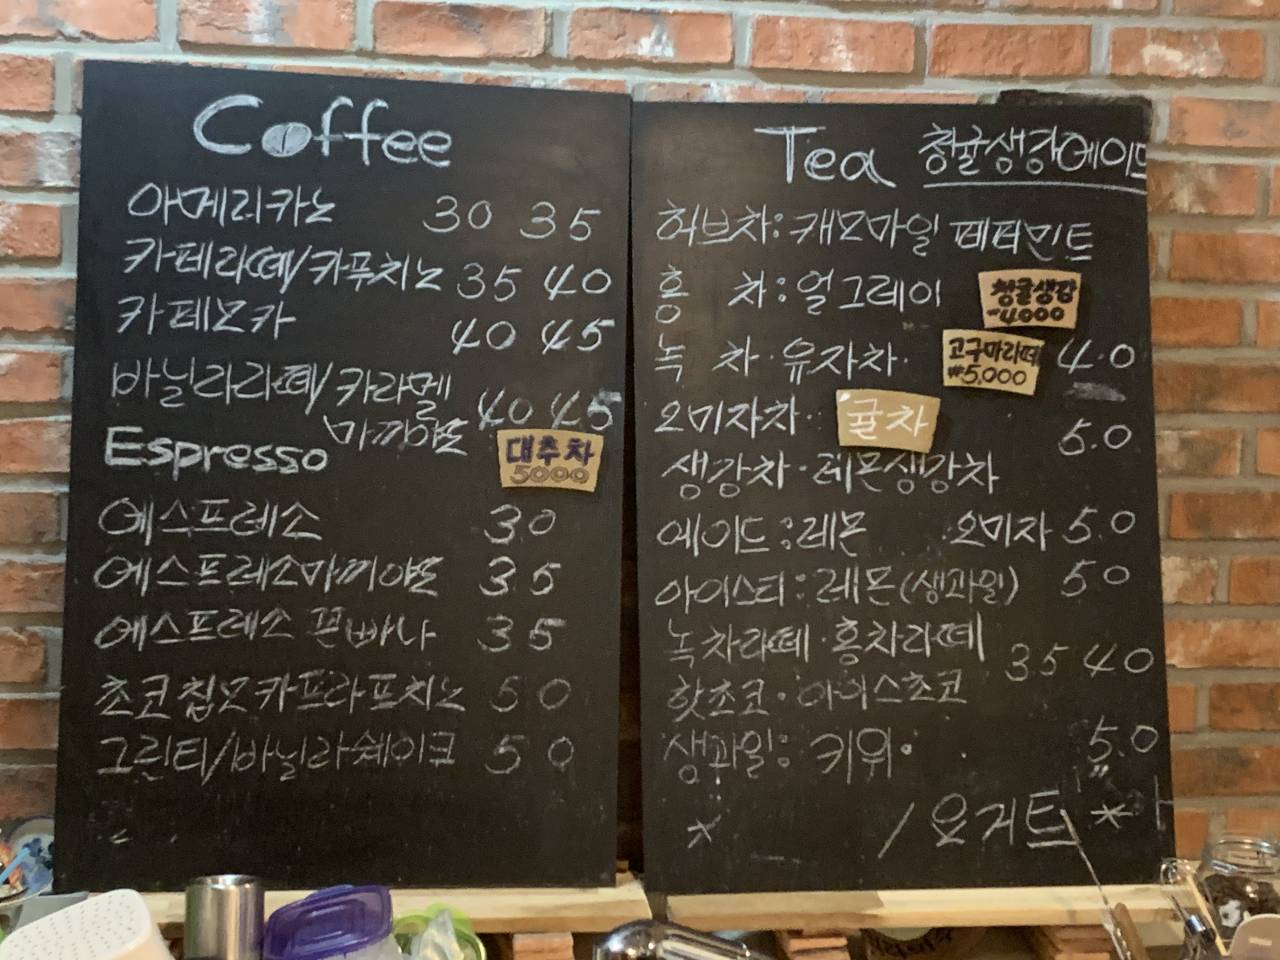 Coffee
아메리카노 30 35
카페라떼/카푸치노 35 40
카페모카 40 45
바닐라라떼/카라멜 마끼아또 40 45
대추차
5000
Espresso
에스프레소 30
에스프레소마끼아또 35
에스프레소 꼰빠나 35
초코칩모카프라프치노 50
그린티/바닐라쉐이크 50
Tea 청귤생강에이드
허브차: 캐모마일 페퍼민트
홍 차: 얼그레이
청귤생강
₩4000
녹 차·유자차· 4.0
고구마라떼
₩5,000
오미자차· 귤차 5.0
생강차·레몬생강차
에이드:레몬 오미자 5.0
아이스티:레몬(생과일) 50
녹차라떼·홍차라떼 35 40
핫초코·아이스초코
생과일: 키위· 5.0
* / 요거트 *